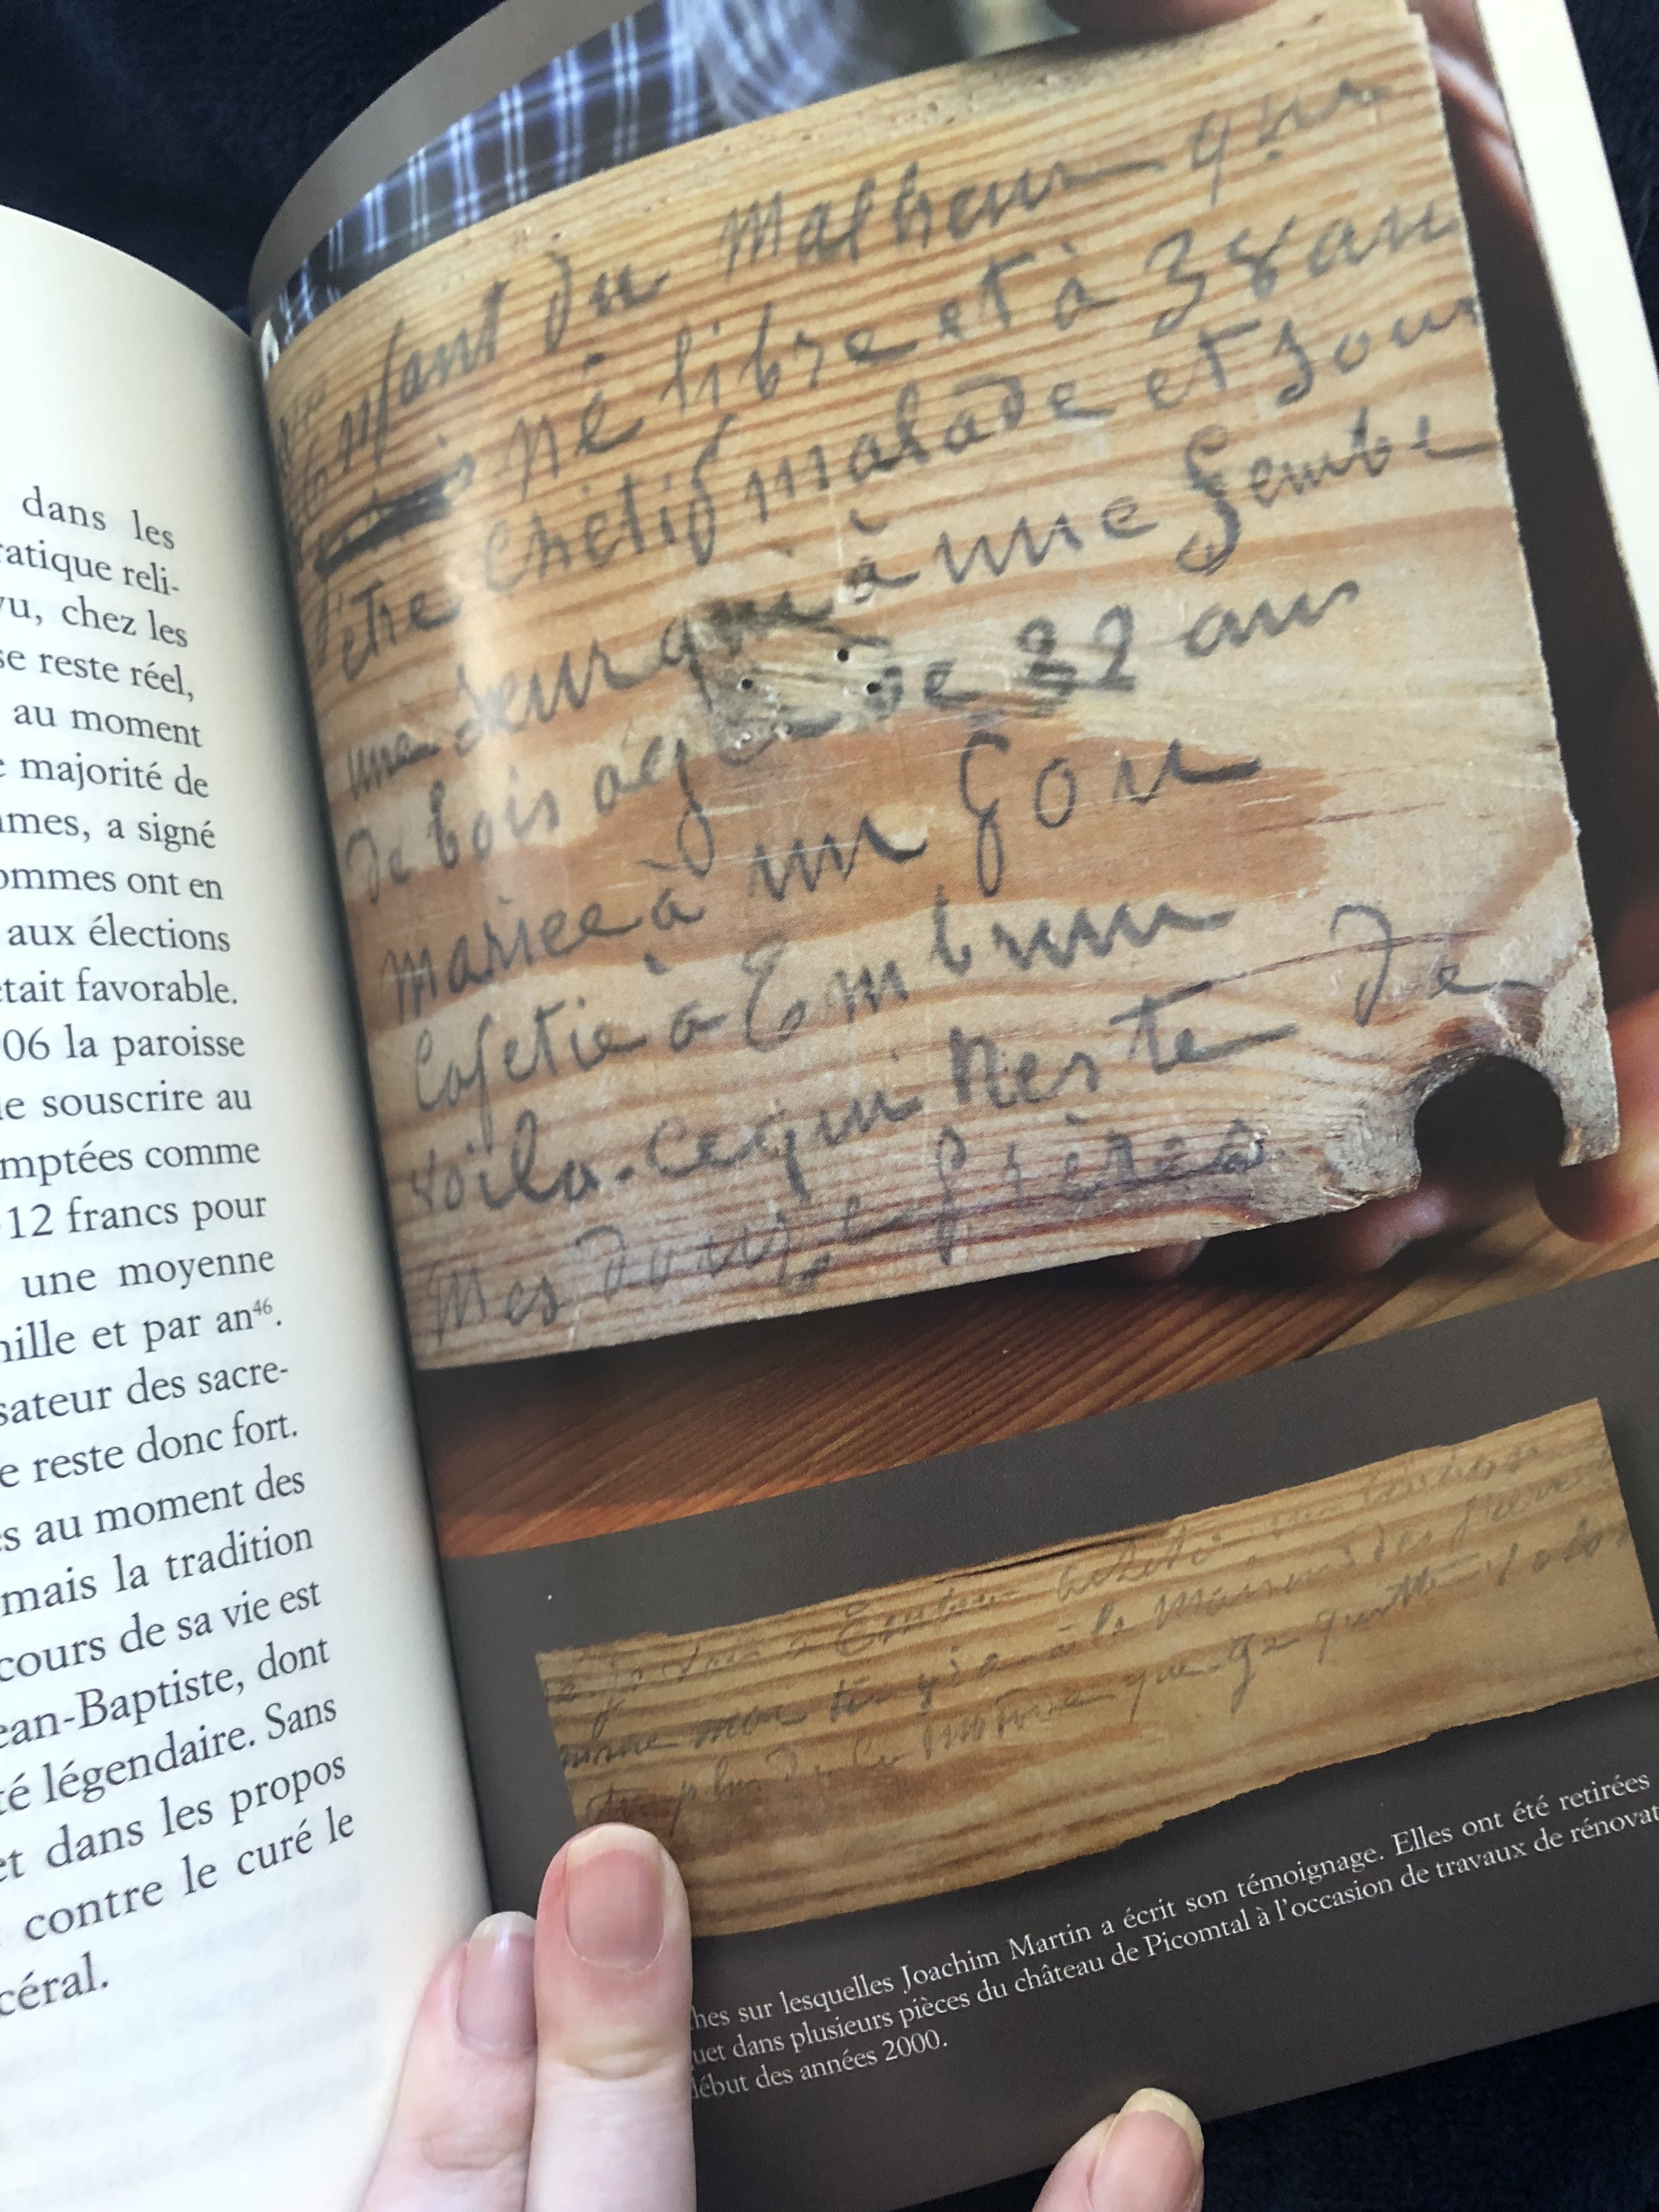 dans les
ratique reli-
vu, chez les
se reste réel,
au moment
e majorité de
mmes, a signé
ommes ont en
aux élections
était favorable.
06 la paroisse
e souscrire au
mptées comme
12 francs pour
une moyenne
mille et par an46.
sateur des sacre-
e reste donc fort.
s au moment des
mais la tradition
cours de sa vie est
ean-Baptiste, dont
té légendaire. Sans
et dans les propos
contre le curé le
céral.
Enfant du Malheur que
né libre et à 38 ans
d'être chétif malade et sour
une seur qui à une Gembe
de bois agée de 22 ans
mariee à un Gon
Cafetie à Embrun
voila ce qui Reste de
Mes douze frères
à Embrun acheté
mon à la Maison des
plus du Le Moine que ge quitte
hes sur lesquelles Joachim Martin a écrit son témoignage. Elles ont été retirées
uet dans plusieurs pièces du château de Picomtal à l'occasion de travaux de rénovat
début des années 2000.